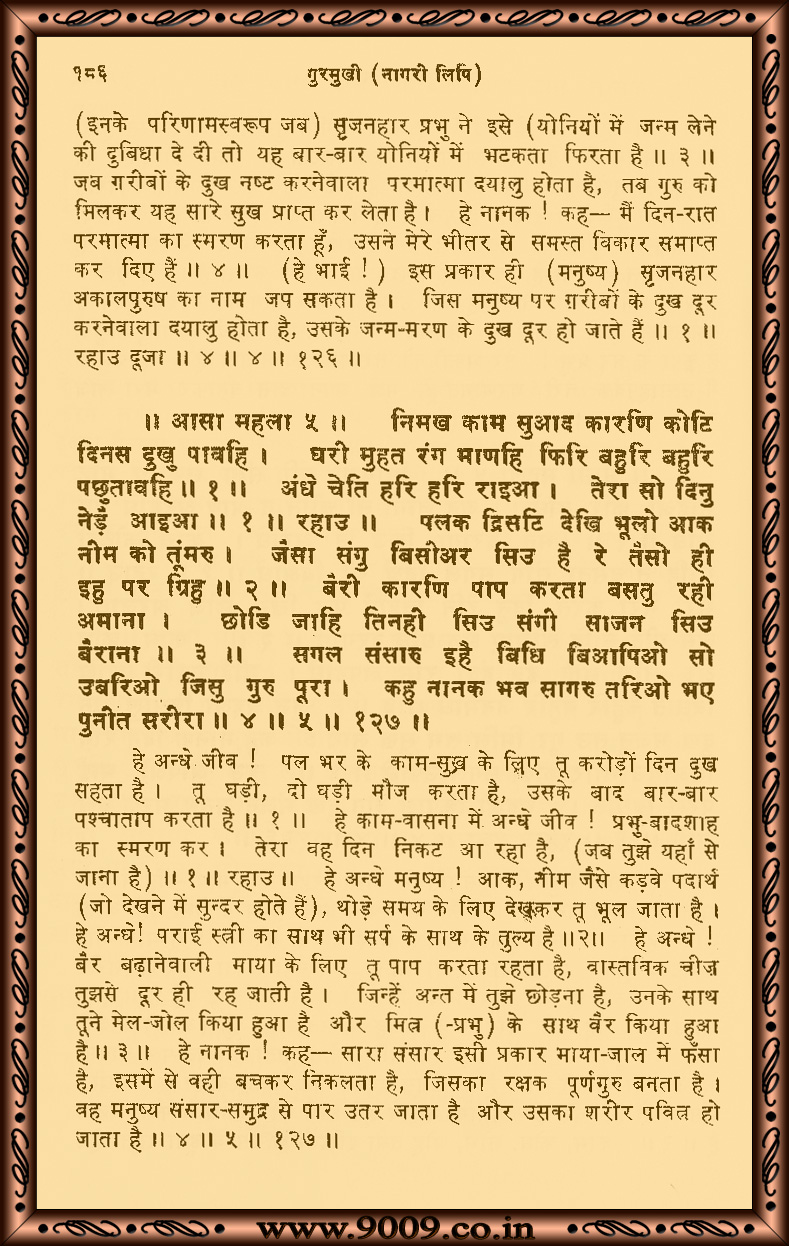 १८६ गुरमुखी (नागरी लिपि)
(इनके परिणामस्वरूप जब) सृजनहार प्रभु ने इसे (योनियों में जन्म लेने
की दुबिधा दे दी तो यह बार-बार योनियों में भटकता फिरता है ॥ ३ ॥
जब ग़रीबों के दुख नष्ट करनेवाला परमात्मा दयालु होता है, तब गुरु को
मिलकर यह सारे सुख प्राप्त कर लेता है । हे नानक ! कह— मैं दिन-रात
परमात्मा का स्मरण करता हूँ, उसने मेरे भीतर से समस्त विकार समाप्त
कर दिए हैं ॥ ४ ॥ (हे भाई ! ) इस प्रकार ही (मनुष्य) सृजनहार
अकालपुरुष का नाम जप सकता है । जिस मनुष्य पर ग़रीबों के दुख दूर
करनेवाला दयालु होता है, उसके जन्म-मरण के दुख दूर हो जाते हैं ॥ १ ॥
रहाउ दूजा ॥ ४ ॥ ४ ॥ १२६ ॥
॥ आसा महला ५ ॥ निमख काम सुआद कारणि कोटि
दिनस दुखु पावहि । घरी मुहत रंग माणहि फिरि बहुरि बहुरि
पछुतावहि ॥ १ ॥ अंधे चेति हरि हरि राइआ । तेरा सो दिनु
नेड़ै आइआ ॥ १ ॥ रहाउ ॥ पलक द्रिसटि देखि भूलो आक
नीम को तूंमरु । जैसा संगु बिसीअर सिउ है रे तैसो ही
इहु पर ग्रिहु ॥ २ ॥ बैरी कारणि पाप करता बसतु रही
अमाना । छोडि जाहि तिनही सिउ संगी साजन सिउ
बैराना ॥ ३ ॥ सगल संसारु इहै बिधि बिआपिओ सो
उबरिओ जिसु गुरु पूरा । कहु नानक भव सागरु तरिओ भए
पुनीत सरीरा ॥ ४ ॥ ५ ॥ १२७ ॥
हे अन्धे जीव ! पल भर के काम-सुख के लिए तू करोड़ों दिन दुख
सहता है । तू घड़ी, दो घड़ी मौज करता है, उसके बाद बार-बार
पश्चाताप करता है ॥ १ ॥ हे काम-वासना में अन्धे जीव ! प्रभु-बादशाह
का स्मरण कर । तेरा वह दिन निकट आ रहा है, (जब तुझे यहाँ से
जाना है) ॥ १ ॥ रहाउ ॥ हे अन्धे मनुष्य ! आक, नीम जैसे कड़वे पदार्थ
(जो देखने में सुन्दर होते हैं), थोड़े समय के लिए देखकर तू भूल जाता है ।
हे अन्धे! पराई स्त्री का साथ भी सर्प के साथ के तुल्य है ॥२॥ हे अन्धे !
बैर बढ़ानेवाली माया के लिए तू पाप करता रहता है, वास्तविक चीज़
तुझसे दूर ही रह जाती है । जिन्हें अन्त में तुझे छोड़ना है, उनके साथ
तूने मेल-जोल किया हुआ है और मित्र (-प्रभु) के साथ वैर किया हुआ
है ॥ ३ ॥ हे नानक ! कह— सारा संसार इसी प्रकार माया-जाल में फँसा
है, इसमें से वही बचकर निकलता है, जिसका रक्षक पूर्णगुरु बनता है ।
वह मनुष्य संसार-समुद्र से पार उतर जाता है और उसका शरीर पवित्र हो
जाता है ॥ ४ ॥ ५ ॥ १२७ ॥
www.9009.co.in